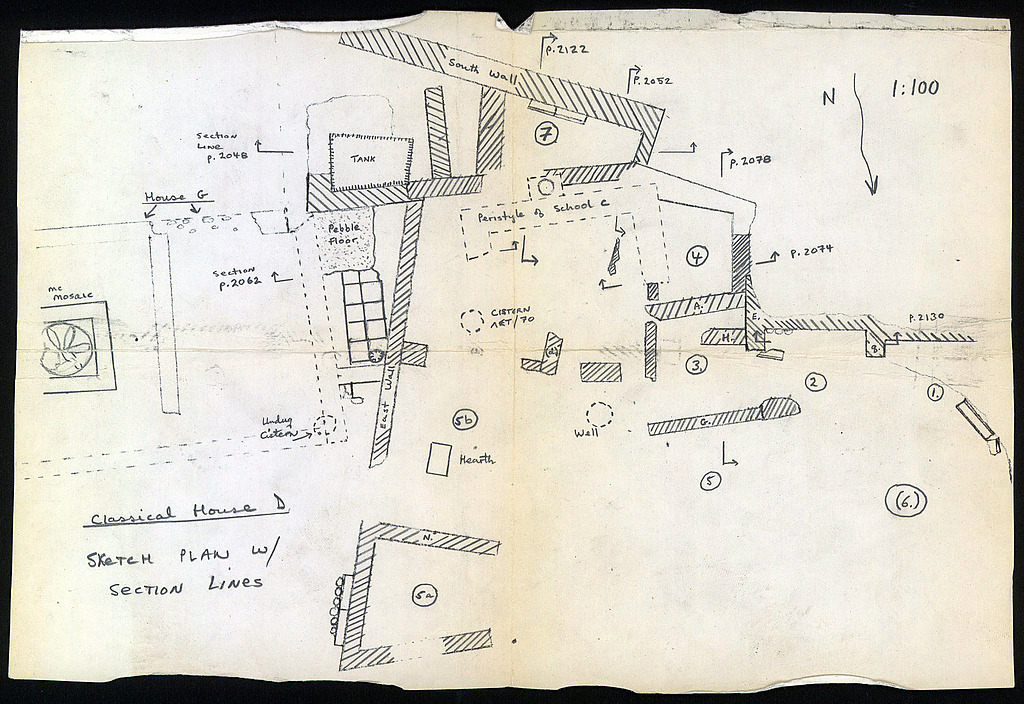 South Wall
p.2122
P.2052
N
1:100
Section
Line
p. 2048
TANK
7
p.2078
House G
Pebble
Floor
Peristyle of School C
Section
p.2062
4
p.2074
MC
MOSAIC
CISTERN
/70
A.
E.
p.2130
H.
B.
3.
2
1.
East Wall
Undug
Cistern
5b
Well
G.
Hearth
5
(6.)
Classical House D
SKETCH PLAN W/
SECTION LINES
N.
5a